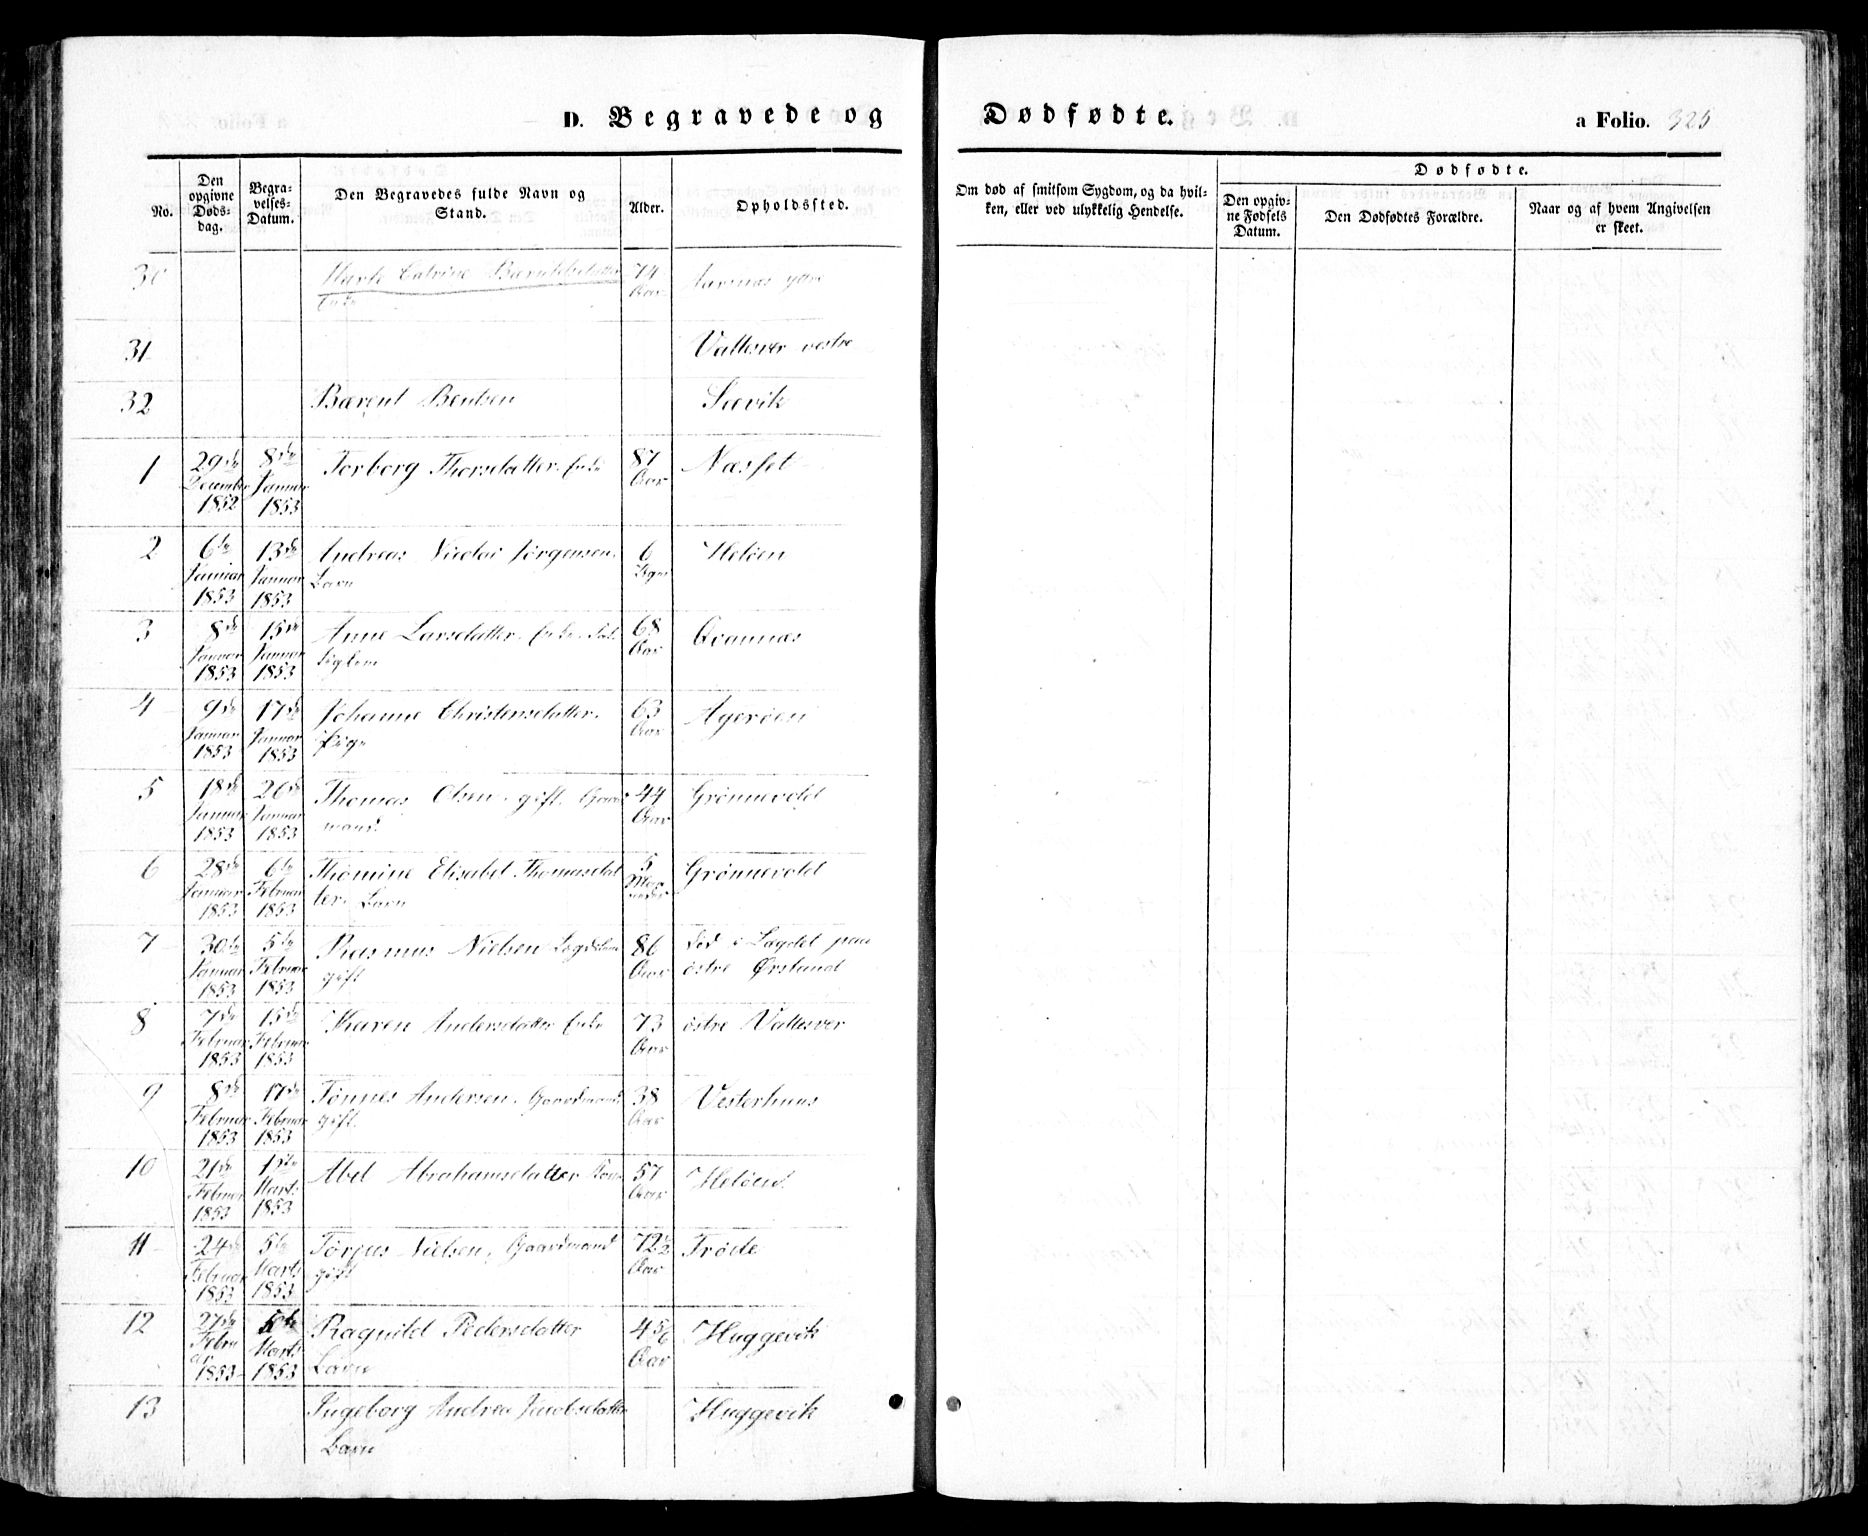 D. Begravede og Dødfødte. a Folio. 325
No.
Den opgivne Døds-dag.
Begra-velses-Datum.
Den Begravedes fulde Navn og Stand.
Alder.
Opholdssted.
Om død af smitsom Sygdom, og da hvil-
ken, eller ved ulykkelig Hendelse.
Dødfødte.
Den opgiv-ne Fødsels Datum.
Den Dødfødtes Forældre.
Naar og af hvem Angivelsen er skeet.
30 Catrine 74 Aar ytre
Enke
31 Vallesver vestre
32 Bærent Bentsen Sævik
1 29de December 1852 8de Januar 1853 Torborg Thorsdatter. Enke 87 Aar Næsset
2 6te Januar 1853 13de Januar 1853 Andreas Nicolai Jørgensen. 6 Dage Heløen
Barn
3 8de Januar 1853 15de Januar 1853 Anne Larsdatter. Enke. 68 Aar
4 9de Januar 1853 17de Januar 1853 Johanne Christensdatter. 63 Aar Agerøen
Pige
5 18de Januar 1853 26de Januar 1853 Thomas Olsen. gift. Gaard- 44 Aar Grønnevold
mand.
6 28de Januar 1853 6te Februar 1853 Thomine Elisabet Thomasdat 5 Maaneder Grønnevold
ter. Barn
7 30te Januar 1853 5te Februar 1853 Rasmus Nielsen Lægdslem 86 Aar død i Lægdet paa
gift østre Ørsland
8 7de Februar 1853 15de Februar 1853 Karen Andersdatter Enke 73 Aar østre Vallesver
9 8de Februar 1853 17de Februar 1853 Tønnes Andersen. Gaardmand 38 Aar Vesterhuus
gift.
10 21de Februar 1853 1ste Marts 1853 Abel Abrahamsdatter Kone 57 Aar Heløen
11 24de Februar 1853 5te Marts 1853 Torjus Nielsen, Gaardmand 72½ Aar Trøde
gift
12 27de Februar 1853 5te Marts 1853 Ragnild Pedersdatter 4 5/6 Aar Huggevik
Barn
13 Ingeborg Andrea Jacobsdatter Huggevik
Barn